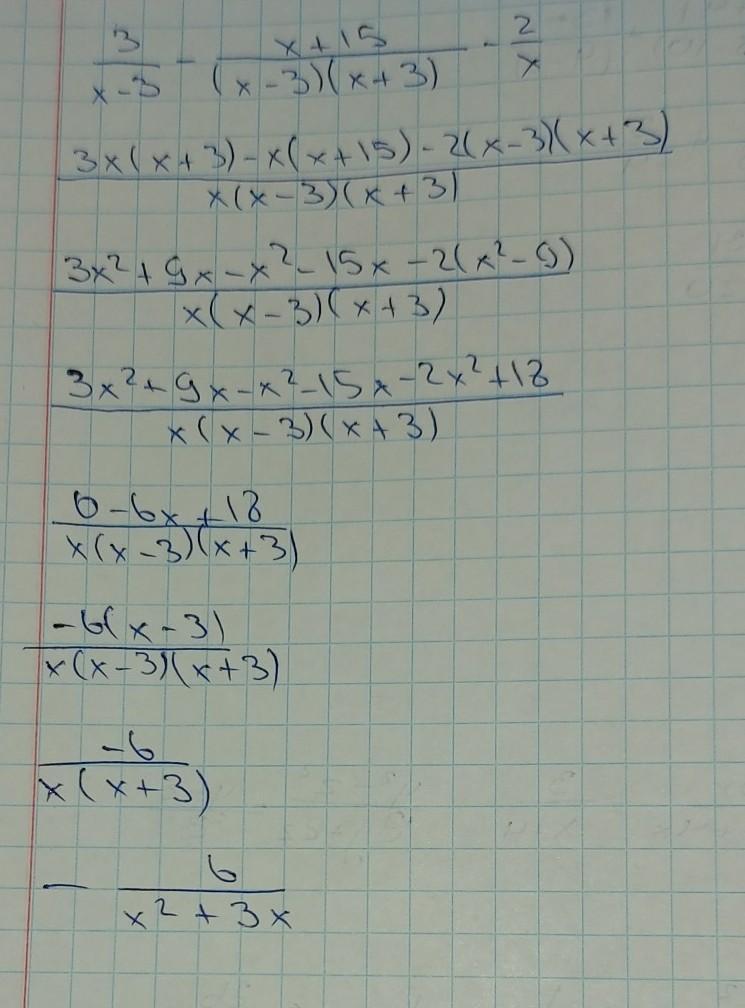 3/(x-3) - (x+15)/((x-3)(x+3)) - 2/x
(3x(x+3)-x(x+15)-2(x-3)(x+3))/(x(x-3)(x+3))
(3x²+9x-x²-15x-2(x²-9))/(x(x-3)(x+3))
(3x²+9x-x²-15x-2x²+18)/(x(x-3)(x+3))
(0-6x+18)/(x(x-3)(x+3))
(-6(x-3))/(x(x-3)(x+3))
(-6)/(x(x+3))
- 6/(x²+3x)